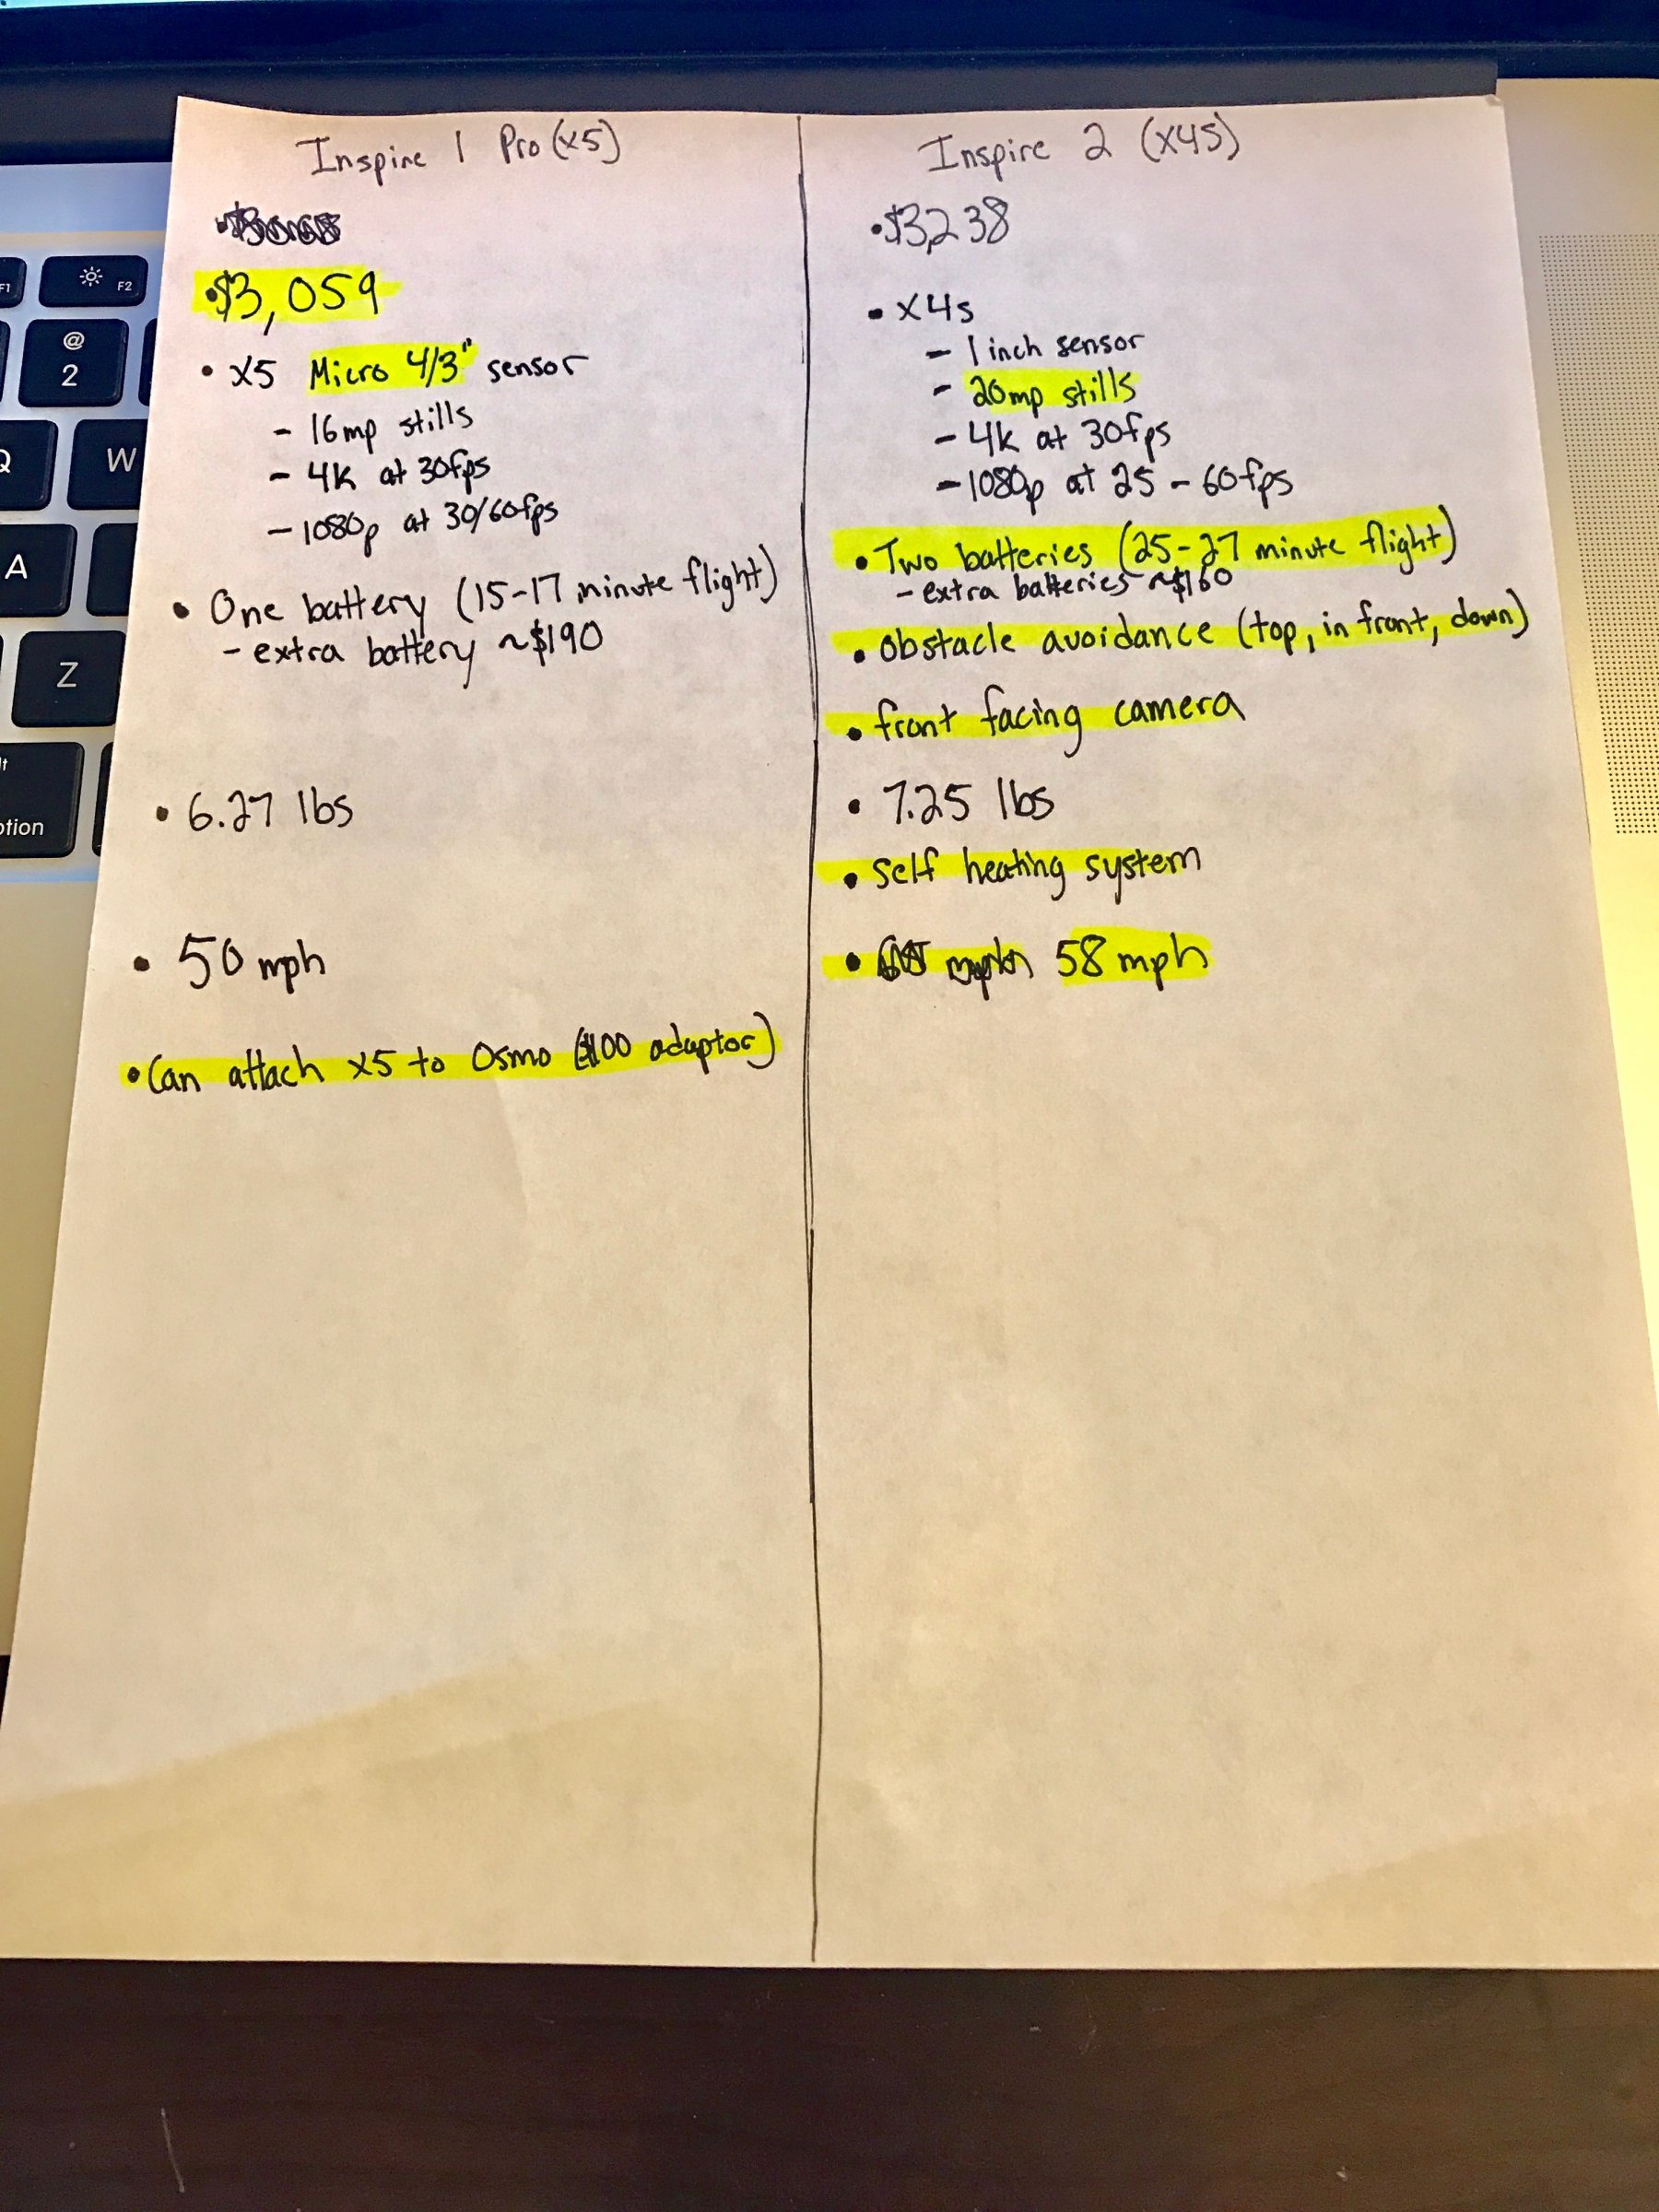 Inspire 1 Pro (x5)
• $3,059
• X5 Micro 4/3" sensor
- 16mp stills
- 4K at 30fps
- 1080p at 30/60fps
• One battery (15-17 minute flight)
- extra battery ~$190
• 6.27 lbs
• 50 mph
• Can attach x5 to Osmo ($100 adaptor)
Inspire 2 (x4s)
• $3,238
• X4s
- 1 inch sensor
- 20mp stills
- 4k at 30fps
- 1080p at 25 - 60fps
• Two batteries (25-27 minute flight)
- extra batteries ~$160
• Obstacle avoidance (top, in front, down)
• front facing camera
• 7.25 lbs
• Self heating system
• 58 mph
F1
F2
@
2
Q
W
A
Z